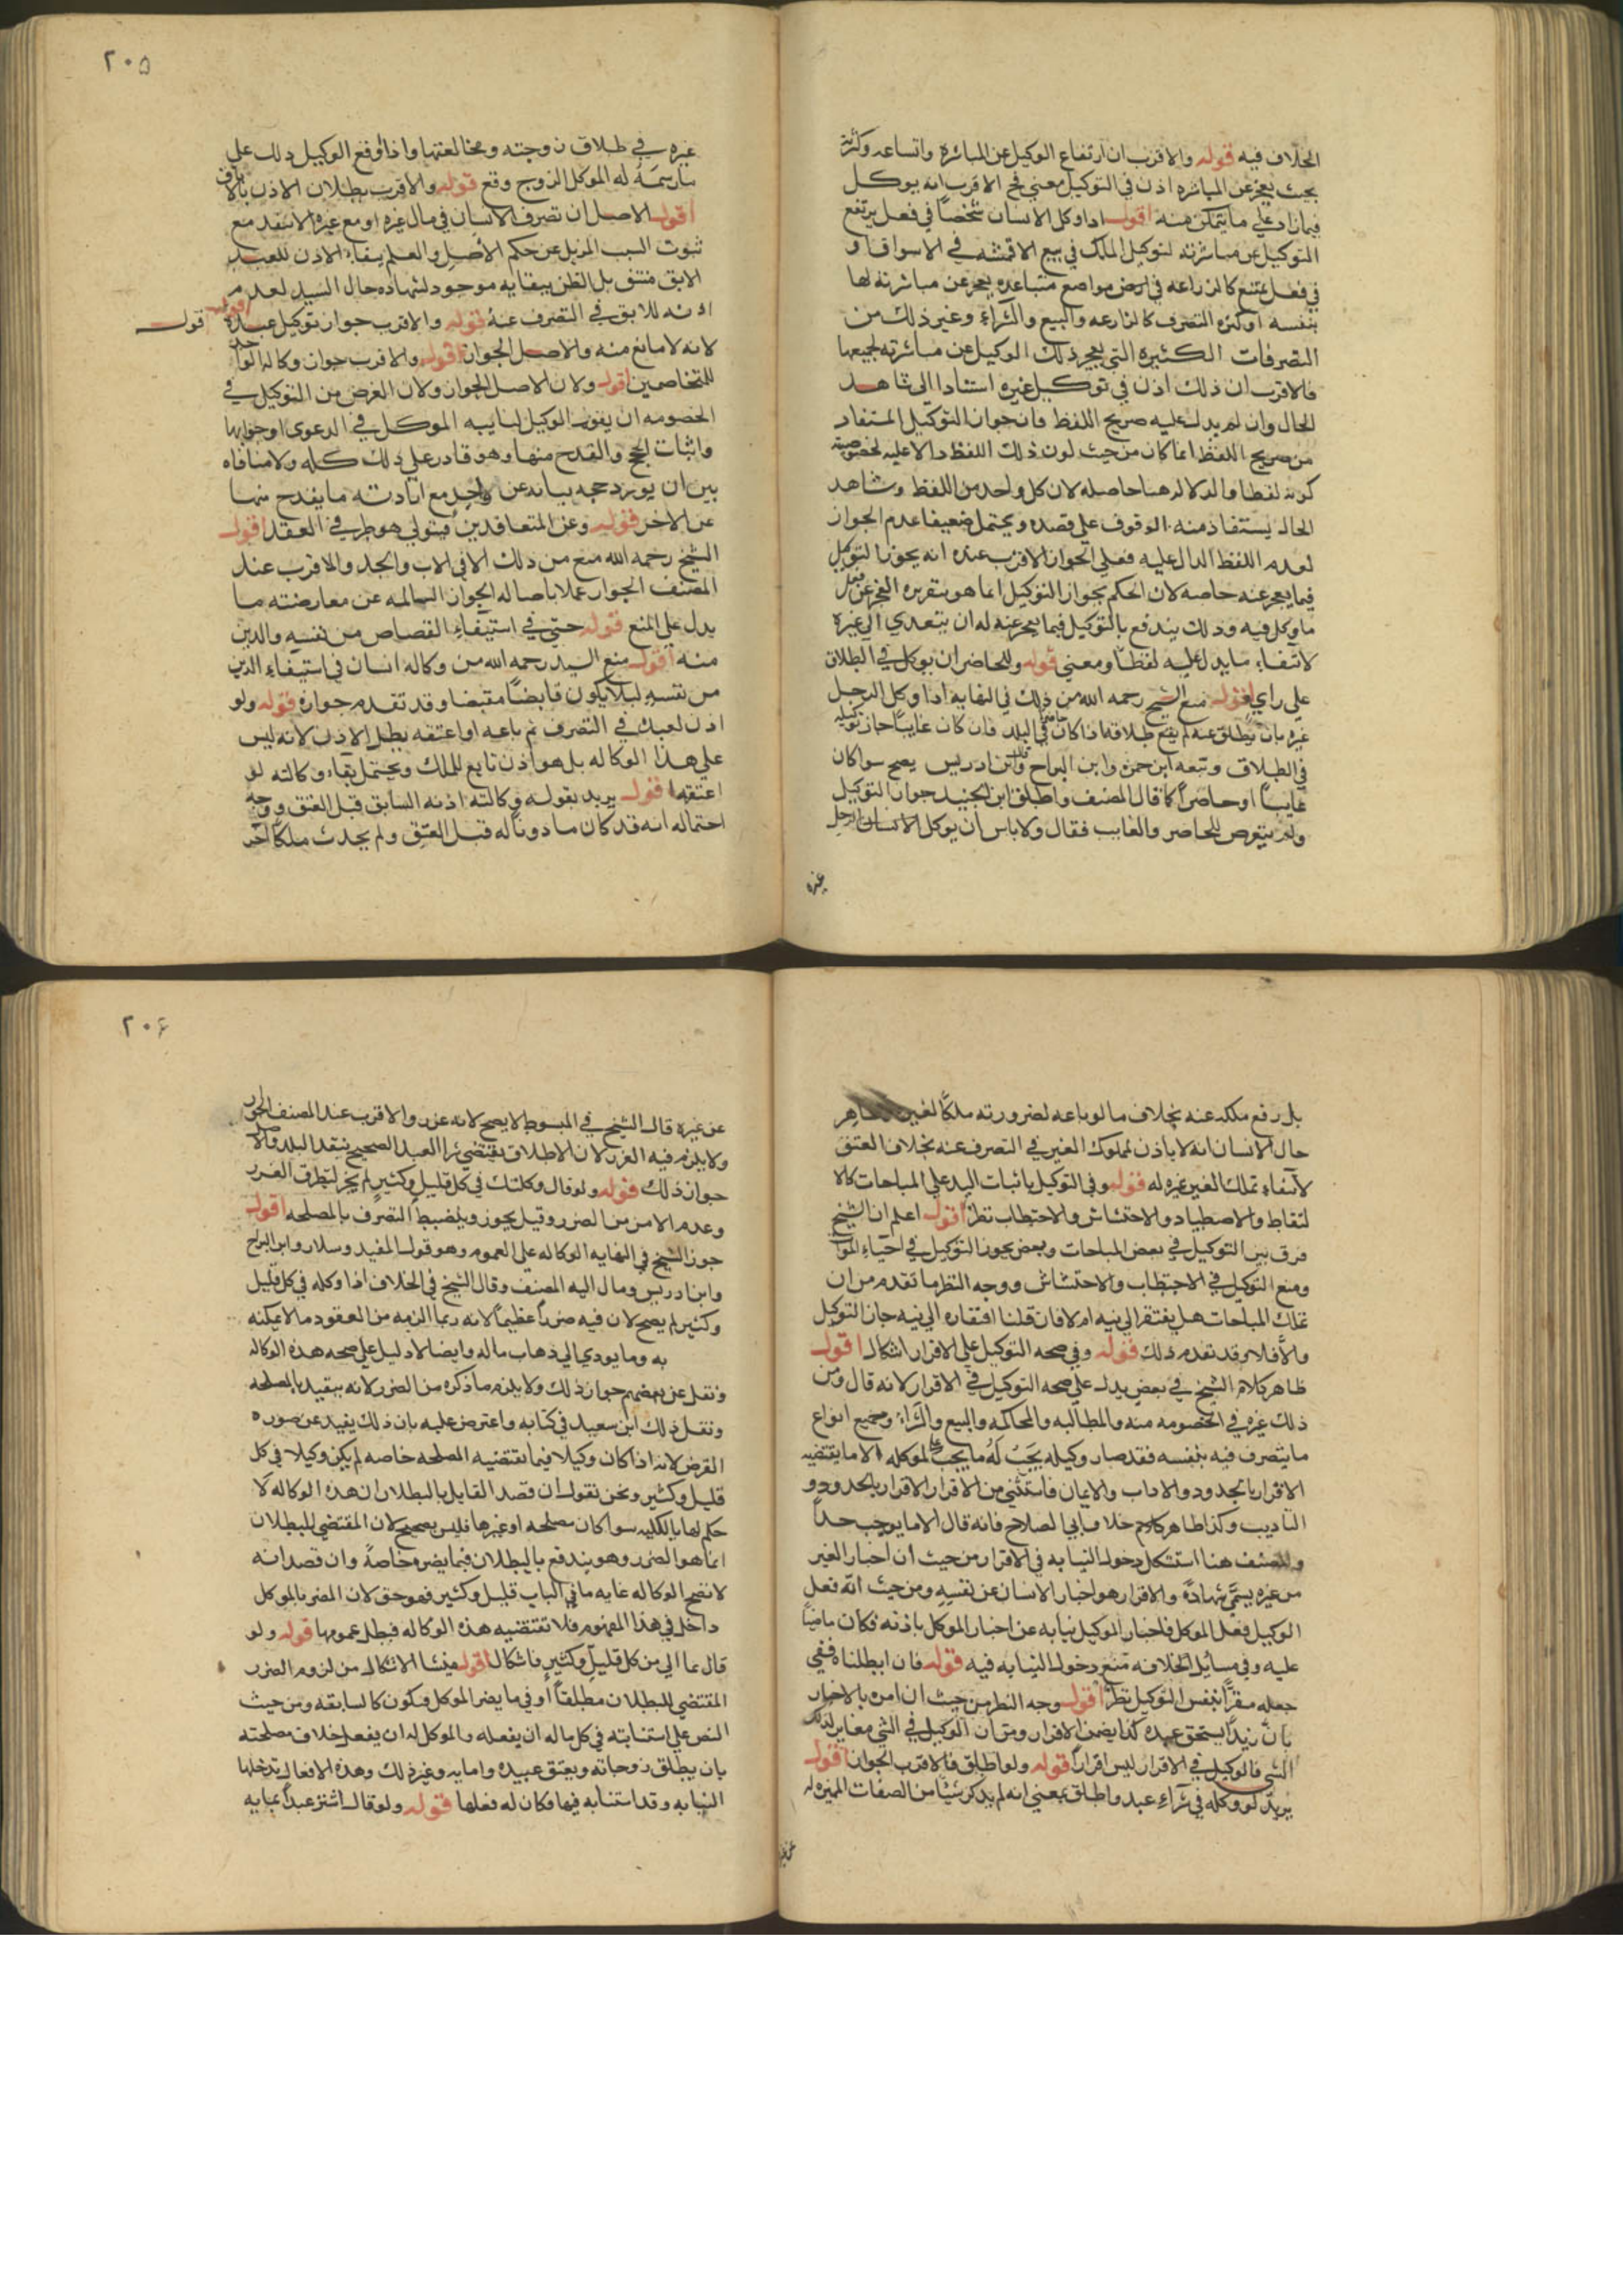 الخلاف فيه قوله والاقرب ان ارتفاع الوكيل عن المباشرة واتساعه وكثرته
بحيث يعجز عن المباشره اذن في التوكيل معنى فح الاقرب انه يوكل
فيما زاد علي ما يتمكن منه اقول اذا وكل الانسان شخصا في فعل يرتفع
التوكيل عن مباشرته لتوكيل الملك في بيع الاقمشه في الاسواق او
في فعل يمتنع كالمزارعه في ارض مواضع متباعده يعجز عن مباشرته لها
بنفسه او كثره التصرف كالمزارعه والبيع والشراء وغير ذلك من
التصرفات الكثيره التي يعجز ذلك الوكيل عن مباشرته لجميعها
فالاقرب ان ذلك اذن في توكيل غيره استنادا الي شاهد
الحال وان لم يدل عليه صريح اللفظ فان جواز التوكيل المستفاد
من صريح اللفظ انما كان من حيث لون ذلك اللفظ دالا عليه لخصوصية
كونه لفظا والدلاله هنا حاصله لان كل واحد من اللفظ وشاهد
الحال يستفاد منه الوقوف علي قصده ويحتمل ضعيفا عدم الجواز
لعدم اللفظ الدال عليه فعلي الجواز الاقرب عنده انه يجوز التوكيل
فيما يعجز عنه خاصه لان الحكم بجواز التوكيل انما هو بتقريره العجز عن فعل
ما وكل فيه وذلك يندفع بالتوكيل فيما يعجز عنه له ان يتعدي الي غيره
لانتفاء ما يدل عليه لفظا ومعني قوله وللحاضر ان يوكل في الطلاق
علي راي اقول منع الشيخ رحمه الله من ذلك في النهايه اذا وكل الرجل
غيره بان يطلق عنه لم يقع طلاقه اذا كان حاضرا في البلد فان كان غايبا جاز توكيله
في الطلاق وتبعه ابن حمزه وابن البراج وقال ابن ادريس يصح سوا كان
غايبا او حاضرا كما قال المصنف واطلق ابن الجنيد جواز التوكيل
ولم يتعرض للحاضر والغايب فقال ولا باس ان يوكل الانسان الرجل
غيره
٢٠٥
غيره في طلاق زوجته ومخالعتها واذا اوقع الوكيل ذلك علي
ما رسمه له الموكل الزوج وقع قوله والاقرب بطلان الاذن بالاباق
اقول الاصل ان تصرف الانسان في مال غيره او مع غيره لا ينفد مع
ثبوت السبب المزيل عن حكم الاصل والعلم ببقاء الاذن للعبد
الابق منتف بل الظن ببقايه موجود لشهاده حال السيد لعدم
اذنه للابق في التصرف عنه قوله والاقرب جواز توكيل عبده اقول
قول
لانه لا مانع منه والاصل الجواز قوله والاقرب جواز وكاله الواحد
للمتخاصمين اقول ولان الاصل الجواز ولان الغرض من التوكيل في
الخصومه ان يقوم الوكيل لنيابيه الموكل في الدعوي او جوابها
واثبات الحجج والقدح منها وهو قادر علي ذلك كله ولا منافاه
بين ان يورد حجه بيانه عن واحد مع ارادته ما يقدح منها
عن الاخر قوله وعن المتعاقدين فيتولي هو طرفي العقد اقول
الشيخ رحمه الله منع من ذلك الا في الاب والجد والاقرب عند
المصنف الجواز عملا باصاله الجواز السالمه عن معارضته ما
يدل علي المنع قوله حتي في استيفاء القصاص من نفسه والدين
منه اقول منع السيد رحمه الله من وكاله انسان في استيفاء الدين
من نفسه ليلا يكون قابضا مقبضا وقد تقدم جوازه قوله ولو
اذن لعبده في التصرف ثم باعه او اعتقه بطل الاذن لانه ليس
علي هذا الوكاله بل هو اذن تابع للملك ويحتمل بقاء وكالته لو
اعتقه اقول يريد بقوله وكالته اذنه السابق قبل العتق ووجه
احتماله انه قد كان ماذونا له قبل العتق ولم يحدث ملكا اخر
بل رفع ملكه عنه بخلاف ما لو باعه لضرورته ملكا لغيره
حال الانسان انه لا ياذن لمملوك الغير في التصرف عنه بخلاف العتق
لانتفاء تملك الغير غيره له قوله وفي التوكيل باثبات اليد علي المباحات كالا
لتقاط والاصطياد والاحتشاش والاحتطاب نظر اقول اعلم ان الشيخ
فرق بين التوكيل في بعض المباحات وبعض يجوز التوكيل في احياء الموات
ومنع التوكيل في الاحتطاب والاحتشاش ووجه النظر ما تقدم من ان
تملك المباحات هل يفتقر الي نيه ام لا فان قلنا افتقاره الي نيه جاز التوكيل
والا فلا وقد تقدم ذلك قوله وفي صحه التوكيل علي الاقرار اشكال اقول
ظاهر كلام الشيخ في بعض يدل علي صحه التوكيل في الاقرار لانه قال ومن
ذلك غيره في الخصومه منه والمطالبه والمحاكمه والبيع والشراء وجميع انواع
ما يتصرف فيه بنفسه فقد صار وكيله يجب له ما يجب لموكله الا ما يقتضيه
الاقرار بالحدود والاداب والايمان فاستثني من الاقرار الاقرار بالحدود و
التاديب وكذا ظاهر كلام خلاف ابي الصلاح فانه قال الا ما يوجب حدا
والمصنف هنا استشكل دخول النيابه في الاقرار من حيث ان اخبار الغير
من غيره يسمي شهادة والاقرار هو اخبار الانسان عن نفسه ومن حيث انه فعل
الوكيل فعل الموكل فاخبار الوكيل نيابه عن اخبار الموكل باذنه فكان ماضيا
عليه وفي مسائل الخلافه تمنع دخول النيابه فيه قوله فان ابطلناه ففي
جعله مقرا بنفس التوكيل نظر اقول وجه النظر من حيث ان امره بالاخبار
بان زيدا يستحق عنده كذا يضمن الاقرار ومن ان الوكيل في الشي مغاير لذلك
الشي فالوكيل في الاقرار ليس اقرارا قوله ولو اطلق فالاقرب الجواز اقول
يريد لو وكله في شراء عبد واطلق بمعني انه لم يذكر شيئا من الصفات المميزه له
عن غيره
٢٠۶
عن غيره قال الشيخ في المبسوط لا يصح لانه غرر والاقرب عند المصنف الجواز
ولا يلزم فيه الغرر لان الاطلاق يقتضي شرا العبد الصحيح بنقد البلد والا
جواز ذلك قوله ولو قال وكلتك في كل قليل وكثير لم يجز لتطرق الغرر
وعدم الامن من الضرر وقيل يجوز وينضبط التصرف بالمصلحه اقول
جوز الشيخ في النهايه الوكاله علي العموم وهو قول المفيد وسلار وابن البراج
وابن ادريس ومال اليه المصنف وقال الشيخ في الخلاف اذا وكله في كل قليل
وكثير لم يصح لان فيه ضررا عظيما لانه ربما الزمه من العقود ما لا يمكنه
به وما يودي الي ذهاب ماله وايضا لا دليل علي صحه هذه الوكاله
ونقل عن بعضهم جواز ذلك ولا يلزم ما ذكره من الضرر لانه يتقيد بالمصلحه
ونقل ذلك ابن سعيد في كتابه واعترض عليه بان ذلك يفيد عن صوره
الفرض لانه اذا كان وكيلا فيما تقتضيه المصلحه خاصه لم يكن وكيلا في كل
قليل وكثير ونحن نقول ان قصد القايل بالبطلان ان هذه الوكاله لا
حكم لها بالكليه سوا كان مصلحه او غيرها فليس بصحيح لان المقتضي للبطلان
انما هو الضرر وهو يندفع بالبطلان فيما يضره خاصة وان قصد انه
لا تصح الوكاله عايه ما في الباب قليل وكثير فهو حق لان المضر بالموكل
داخل في هذا المفهوم فلا تقتضيه هذه الوكاله فبطل عمومها قوله ولو
قال بما الي من كل قليل وكثير فاشكال اقول منشا الاشكال من لزوم الضرر
المقتضي للبطلان مطلقا او في ما يضر الموكل فيكون كالسابقه ومن حيث
النص علي استنابته في كل ما له ان يفعله والموكل له ان يفعل خلاف مصلحته
بان يطلق زوجاته ويعتق عبيده وامايه وغير ذلك وهذه الافعال تدخلها
النيابه وقد استنابه فيها فكان له فعلها قوله ولو قال اشتر عبدا بمايه